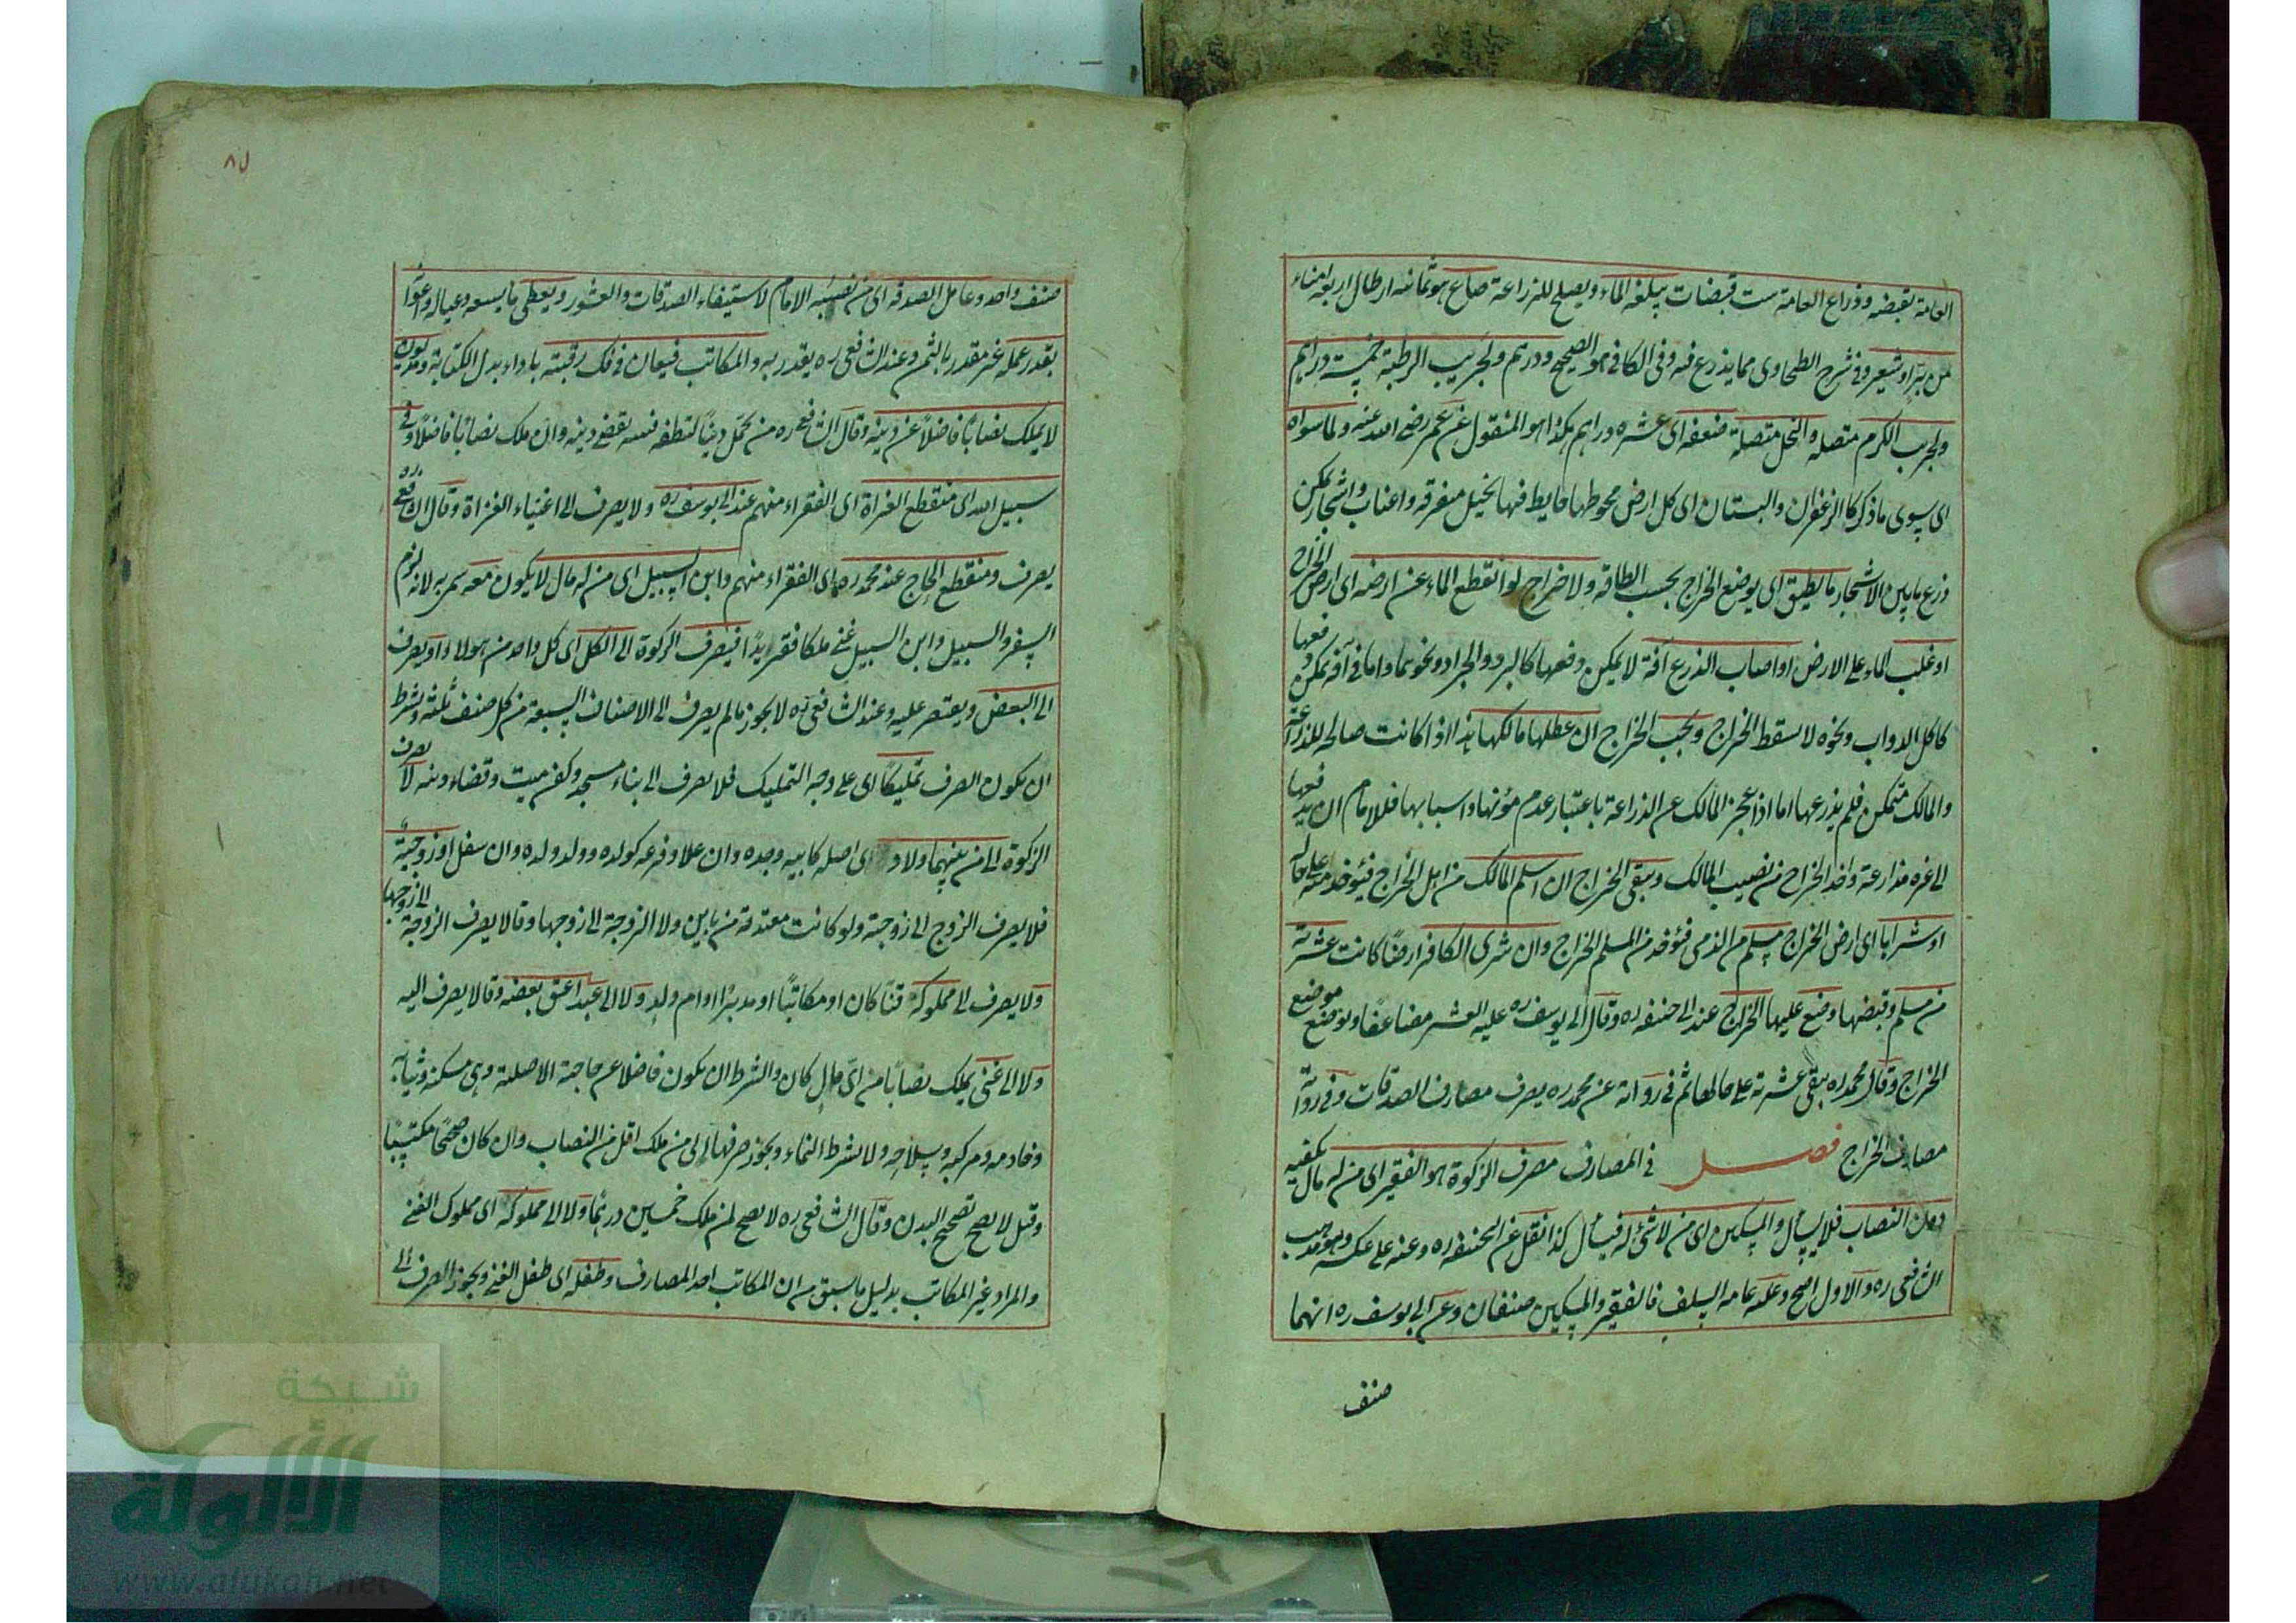 العامة بقبضة وذراع العامة ست قبضات يبلغه الماء ويصلح للزراعة صاع هو ثمانية ارطال اربعة امناء
من بر او شعير وفي شرح الطحاوي مما يزرع فيه وفي الكافي هو الصحيح ودرهم ولجريب الرطبة خمسة دراهم
ولجريب الكرم متصلة والنخل متصلة ضعفه اي عشرة دراهم هكذا هو المنقول عن عمر رضي الله عنه ولما سواه
اي سوى ما ذكر كالزعفران والبستان اي كل ارض يحوطها حايط فيها نخيل متفرقة واعناب واشجار يمكن
زرع ما بين الاشجار ما يطيق اي يوضع الخراج بحسب الطاقة ولا خراج لو انقطع الماء عن ارضه اي ارض الخراج
او غلب الماء على الارض او اصاب الزرع آفة لا يمكن دفعها كالبرد والجراد ونحوهما واما في آفة يمكن دفعها
كاكل الدواب ونحوه لا يسقط الخراج ويجب الخراج ان عطلها مالكها هذا اذا كانت صالحة للزراعة
والمالك متمكن فلم يزرعها اما اذا عجز المالك عن الزراعة باعتبار عدم مؤنها واسبابها فللامام ان يدفعها
الى غيره مزارعة واخذ الخراج من نصيب المالك ويبقى الخراج ان اسلم المالك من اهل الخراج فيؤخذ منه على حاله
او شراها اي ارض الخراج مسلم من الذمي فيؤخذ من المسلم الخراج وان شرى الكافر ارضا كانت عشرية
من مسلم وقبضها وضع عليها الخراج عند ابي حنيفة ره وقال ابي يوسف ره عليه العشر مضاعفا ويوضع موضع
الخراج وقال محمد ره يبقى عشرية على حالها ثم في رواية عن محمد ره يصرف مصارف الصدقات وفي رواية
مصارف الخراج فصل في المصارف مصرف الزكوة هو الفقير اي من له مال يكفيه
دون النصاب فلا يسأل والمسكين اي من لا شئ له فيسأل كذا نقل عن ابي حنيفة ره وعنه على عكسه وهو مذهب
الشافعي ره والاول اصح وعليه عامة السلف فالفقير والمسكين صنفان وعن ابي يوسف ره انهما
صنف
٨٥
صنف واحد وعامل الصدقة اي من نصبه الامام لاستيفاء الصدقات والعشور ويعطى ما يسعه وعياله واعوانه
بقدر عمله غير مقدر بالثمن وعند الشافعي ره يقدر به والمكاتب فيعان في فك رقبته باداء بدل الكتابة ومديون
لا يملك نصابا فاضلا عن دينه وقال الشافعي ره من تحمل دينا نفسه يقضي دينه وان ملك نصابا فاضلا وفي
سبيل الله اي منقطع الغزاة اي الفقراء منهم عند ابي يوسف ره ولا يصرف الى اغنياء الغزاة وقال الشافعي ره
يصرف ومنقطع الحاج عند محمد ره اي الفقراء منهم وابن السبيل اي من له مال لا يكون معه سمي به لانه لزم
السفر والسبيل وابن السبيل غني ملكا فقير يدا فيصرف الزكوة الى الكل اي كل واحد من هولاء او يصرف
الى البعض ويقتصر عليه وعند الشافعي ره لا يجوز ما لم يصرف الى الاصناف السبعة من كل صنف ثلثة وشرط
ان يكون الصرف تمليكا اي على وجه التمليك فلا يصرف الى بناء مسجد وكفن ميت وقضاء دينه لا يصرف
الزكوة الى من بينهما ولاد اي اصله كابيه وجده وان علا وفرعه كولده وولد ولده وان سفل او زوجية
فلا يصرف الزوج الى زوجته ولو كانت معتدة من باين ولا الزوجة الى زوجها وقالا يصرف الزوجة الى زوجها
ولا يصرف الى مملوكه قنا كان او مكاتبا او مدبرا او ام ولد ولا الى عبد اعتق بعضه وقالا يصرف اليه
ولا الى غني يملك نصابا من اي مال كان والشرط ان يكون فاضلا عن حاجته الاصلية وهي مسكنه وثيابه
وخادمه ومركبه وسلاحه ولا يشرط النماء ويجوز صرفها الى من ملك اقل من النصاب وان كان صحيحا مكتسبا
وقيل لا يصح لصحيح البدن وقال الشافعي ره لا يصح لمن ملك خمسين درهما ولا الى مملوكه اي مملوك الغني
والمراد غير المكاتب بدليل ما سبق من ان المكاتب احد المصارف وطفله اي طفل الغني ويجوز الصرف الى
شبكة
الألوكة
www.alukah.net